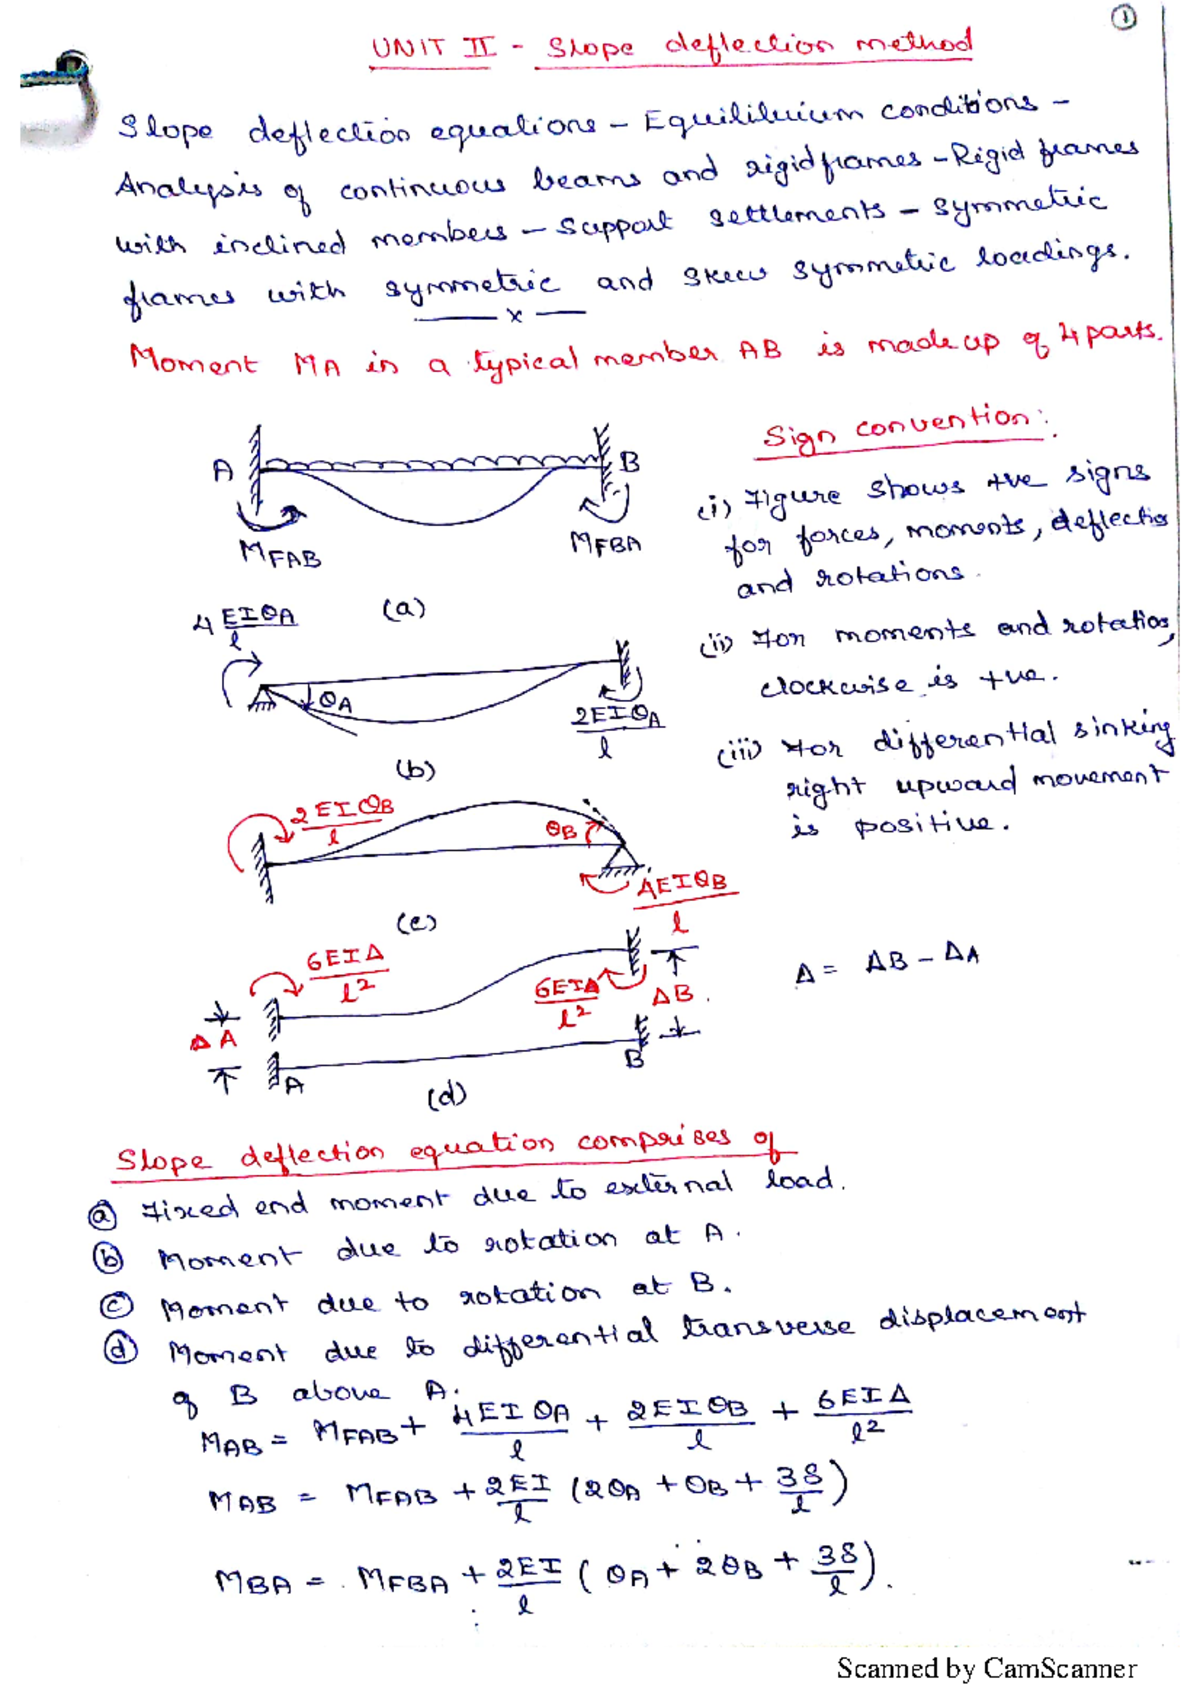 1
UNIT II - Slope deflection method
Slope deflection equations - Equilibrium conditions -
Analysis of continuous beams and rigid frames - Rigid frames
with inclined members - Support settlements - symmetric
frames with symmetric and skew symmetric loadings.
x
Moment MA in a typical member AB is made up of 4 parts.
Sign convention:
A B
MFAB MFBA
(a)
(i) Figure shows +ve signs
for forces, moments, deflectio
and rotations.
(ii) For moments and rotatios,
clockwise is +ve.
(iii) For differential sinking
right upward movement
is positive.
4EIθA/l
θA
2EIθA/l
(b)
2EIθB/l
θB
4EIθB/l
(c)
6EIΔ/l²
6EIΔ/l²
ΔB.
ΔA
A B
(d)
Δ = ΔB - ΔA
Slope deflection equation comprises of
(a) Fixed end moment due to external load.
(b) Moment due to rotation at A.
(c) Moment due to rotation at B.
(d) Moment due to differential transverse displacement
of B above A.
MAB = MFAB + 4EIθA/l + 2EIθB/l + 6EIΔ/l²
MAB = MFAB + 2EI/l (2θA + θB + 3δ/l)
MBA = MFBA + 2EI/l (θA + 2θB + 3δ/l).
Scanned by CamScanner